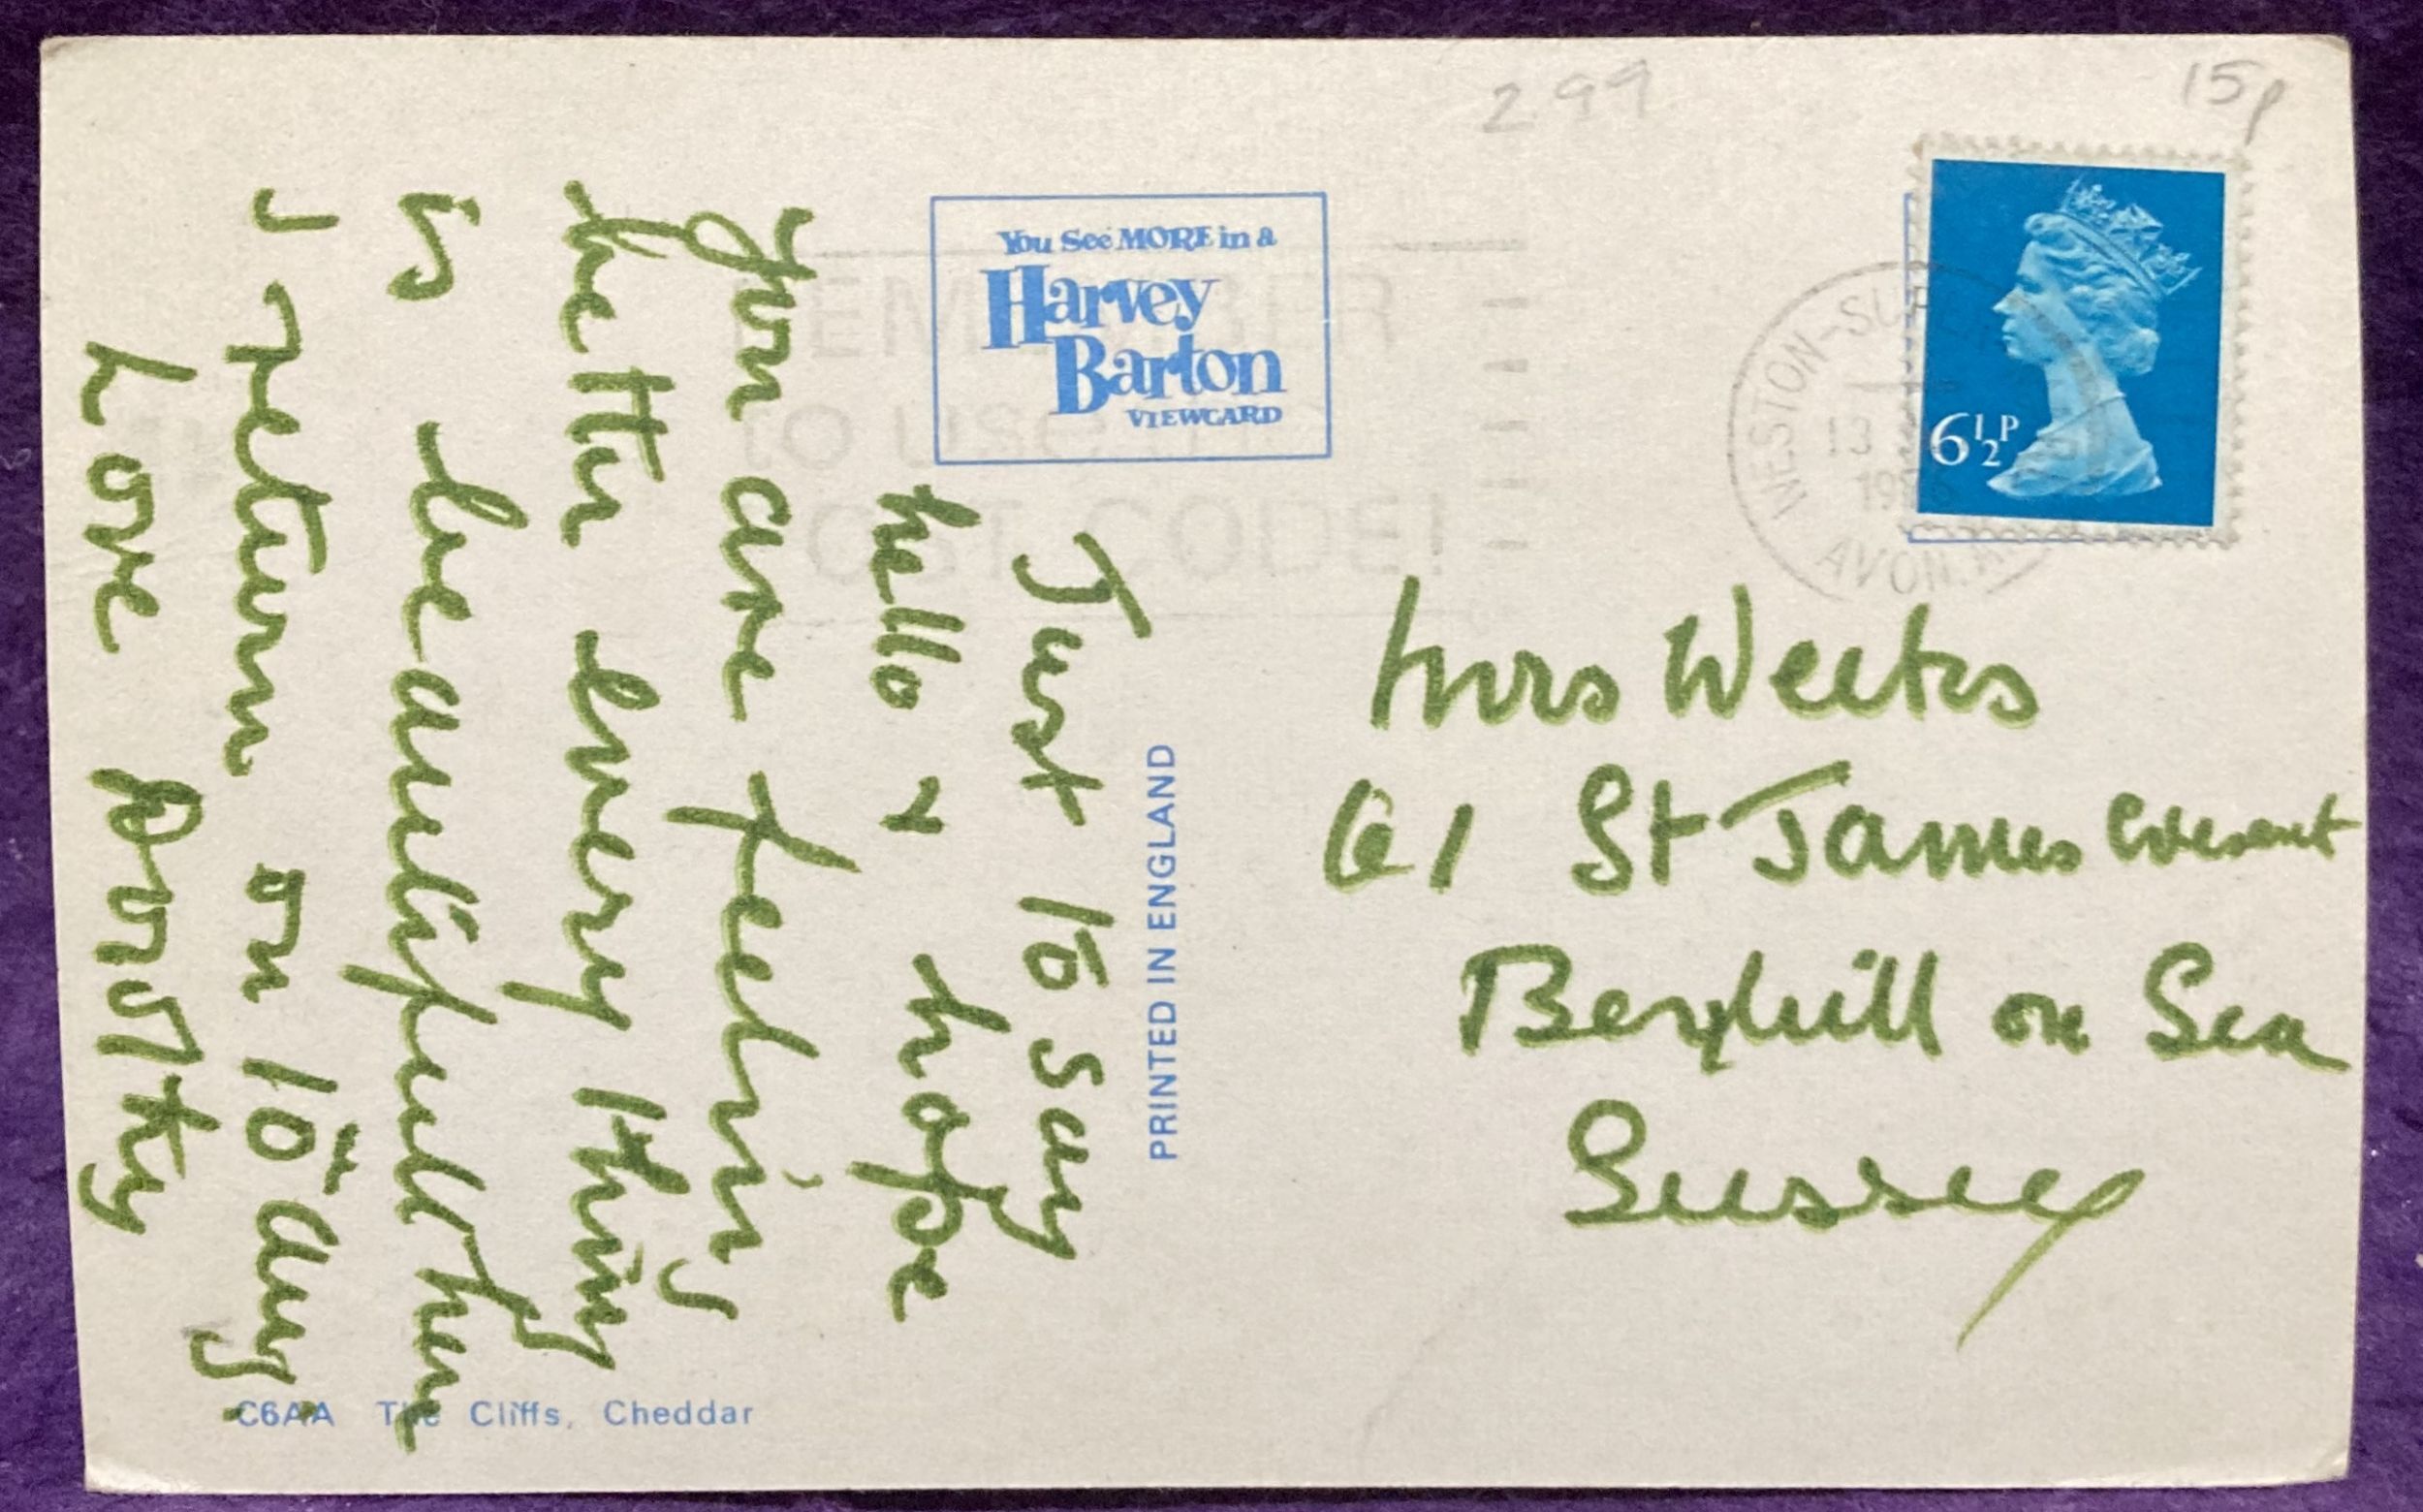 299
15p
You See MORE in a
Harvey
Barton
VIEWCARD
6½P
WESTON-SUPER
13
19
AVON
REMEMBER
to use
POST CODE!
Just to say
hello & hope
you are feeling
better every thing
is beautifull here
I return on 10th Aug
Love Dorothy
PRINTED IN ENGLAND
Mrs Weeks
61 St James Cresent
Bexhill on Sea
Sussex
C6AA The Cliffs, Cheddar